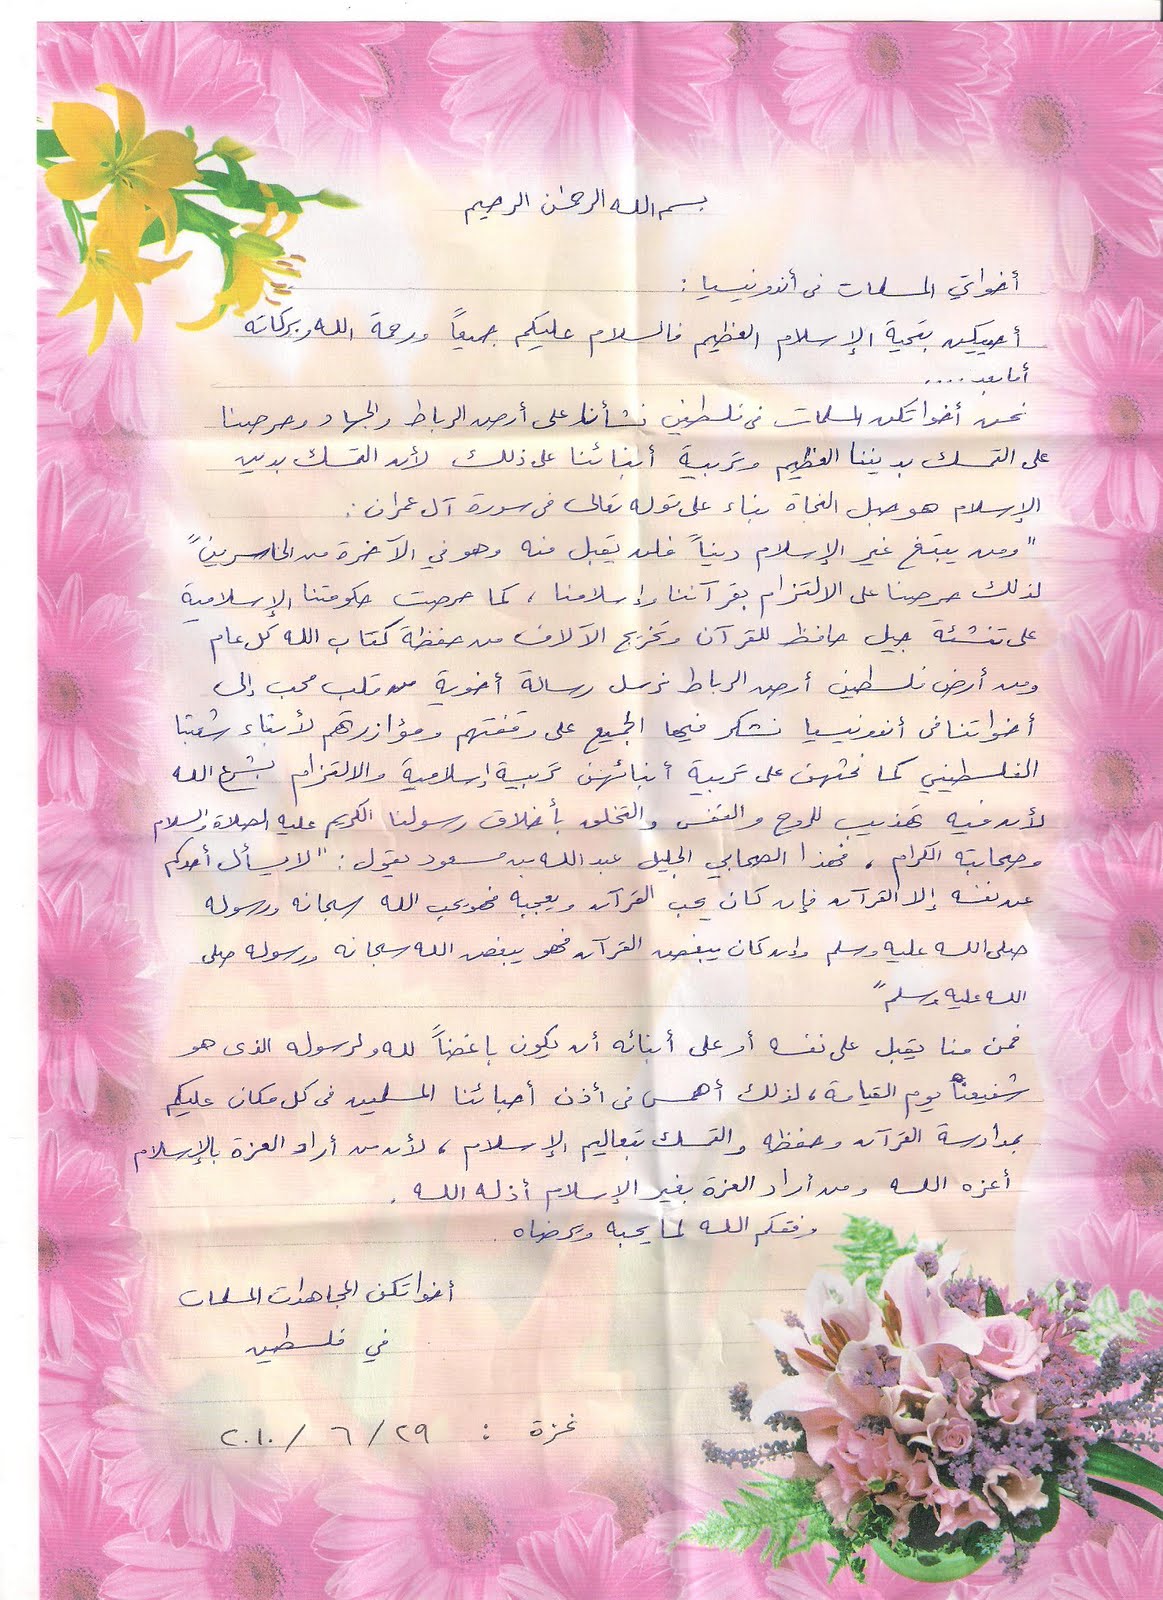 بسم الله الرحمن الرحيم
أخواتي المسلمات في أندونيسيا :
أحييكن بتحية الإسلام العظيم فالسلام عليكم جميعاً ورحمة الله وبركاته
أما بعد ....
نحن أخواتكن المسلمات في فلسطين نشأنا على أرض الرباط والجهاد وحرصنا
على التمسك بديننا العظيم وتربية أبنائنا على ذلك لأن التمسك بدين
الإسلام هو حبل النجاة بناء على قوله تعالى في سورة آل عمران :
"ومن يبتغ غير الإسلام ديناً فلن يقبل منه وهو في الآخرة من الخاسرين"
لذلك حرصنا على الالتزام بقرآننا وإسلامنا ، كما حرصت حكومتنا الإسلامية
على تنشئة جيل حافظ للقرآن وتخريج الآلاف من حفظة كتاب الله كل عام
ومن أرض فلسطين أرض الرباط نرسل رسالة أخوية من قلب محب إلى
أخواتنا في أندونيسيا نشكر فيها الجميع على وقفتهم ومؤازرتهم لأبناء شعبنا
الفلسطيني كما نحثهن على تربية أبنائهن تربية إسلامية والالتزام بشرع الله
لأن فيه تهذيب للروح والنفس والتخلق بأخلاق رسولنا الكريم عليه الصلاة والسلام
وصحابته الكرام ، فهذا الصحابي الجليل عبد الله بن مسعود يقول : "لا يسأل أحدكم
عن نفسه إلا القرآن فإن كان يحب القرآن ويعجبه فهو يحب الله سبحانه ورسوله
صلى الله عليه وسلم وإن كان يبغض القرآن فهو يبغض الله سبحانه ورسوله صلى
الله عليه وسلم"
فمن منا يقبل على نفسه أو على أبنائه أن يكون باغضاً لله ولرسوله الذي هو
شفيعنا يوم القيامة ، لذلك أهمس في أذن أحبائنا المسلمين في كل مكان عليكم
بمدارسة القرآن وحفظه والتمسك بتعاليم الإسلام ، لأن من أراد العزة بالإسلام
أعزه الله ومن أراد العزة بغير الإسلام أذله الله .
وفقكم الله لما يحبه ويرضاه .
أخواتكن المجاهدات المسلمات
في فلسطين
غزة : ٢٩ / ٦ / ٢٠١٠